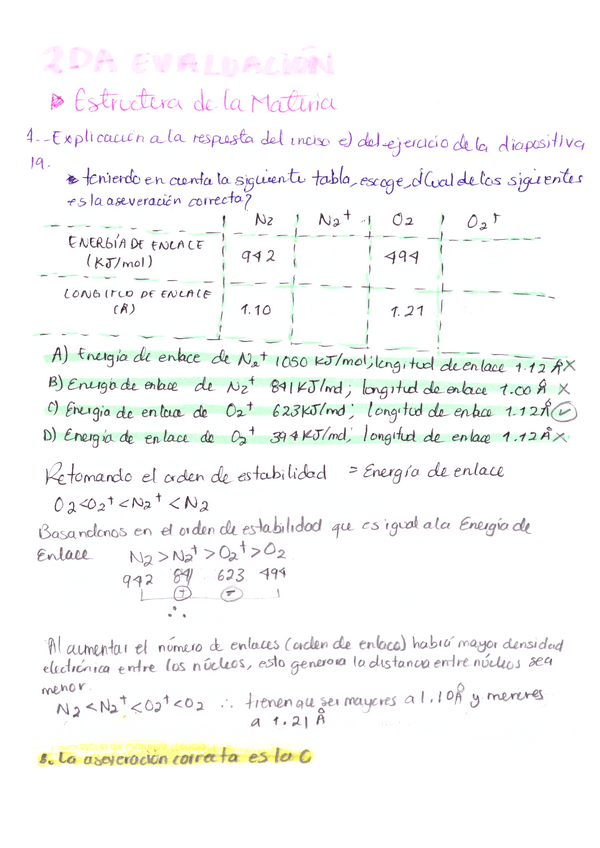 2DA EVALUACIÓN
Estructura de la Materia
1.-Explicación a la respuesta del inciso e) del ejercicio de la diapositiva
19.
teniendo en cuenta la siguiente tabla, escoge ¿Cual de las siguientes
es la aseveración correcta?
N2 N2+ O2 O2+
ENERGÍA DE ENLACE
(KJ/mol) 942 494
LONGITUD DE ENLACE
(Å) 1.10 1.21
A) Energía de enlace de N2+ 1050 KJ/mol; longitud de enlace 1.12 Å X
B) Energía de enlace de N2+ 841 KJ/mol; longitud de enlace 1.00 Å X
C) Energía de enlace de O2+ 623 KJ/mol; longitud de enlace 1.12 Å ✓
D) Energía de enlace de O2+ 394 KJ/mol; longitud de enlace 1.12 Å X
Retomando el orden de estabilidad = Energía de enlace
O2<O2+<N2+<N2
Basandonos en el orden de estabilidad que es igual a la Energía de
Enlace N2>N2+>O2+>O2
942 841 623 494
∴
Al aumentar el número de enlaces (orden de enlace) habrá mayor densidad
electrónica entre los núcleos, esto genera la distancia entre núcleos sea
menor.
N2<N2+<O2+<O2 ∴ tienen que ser mayores a 1.10Å y menores
a 1.21 Å
La aseveración correcta es la C